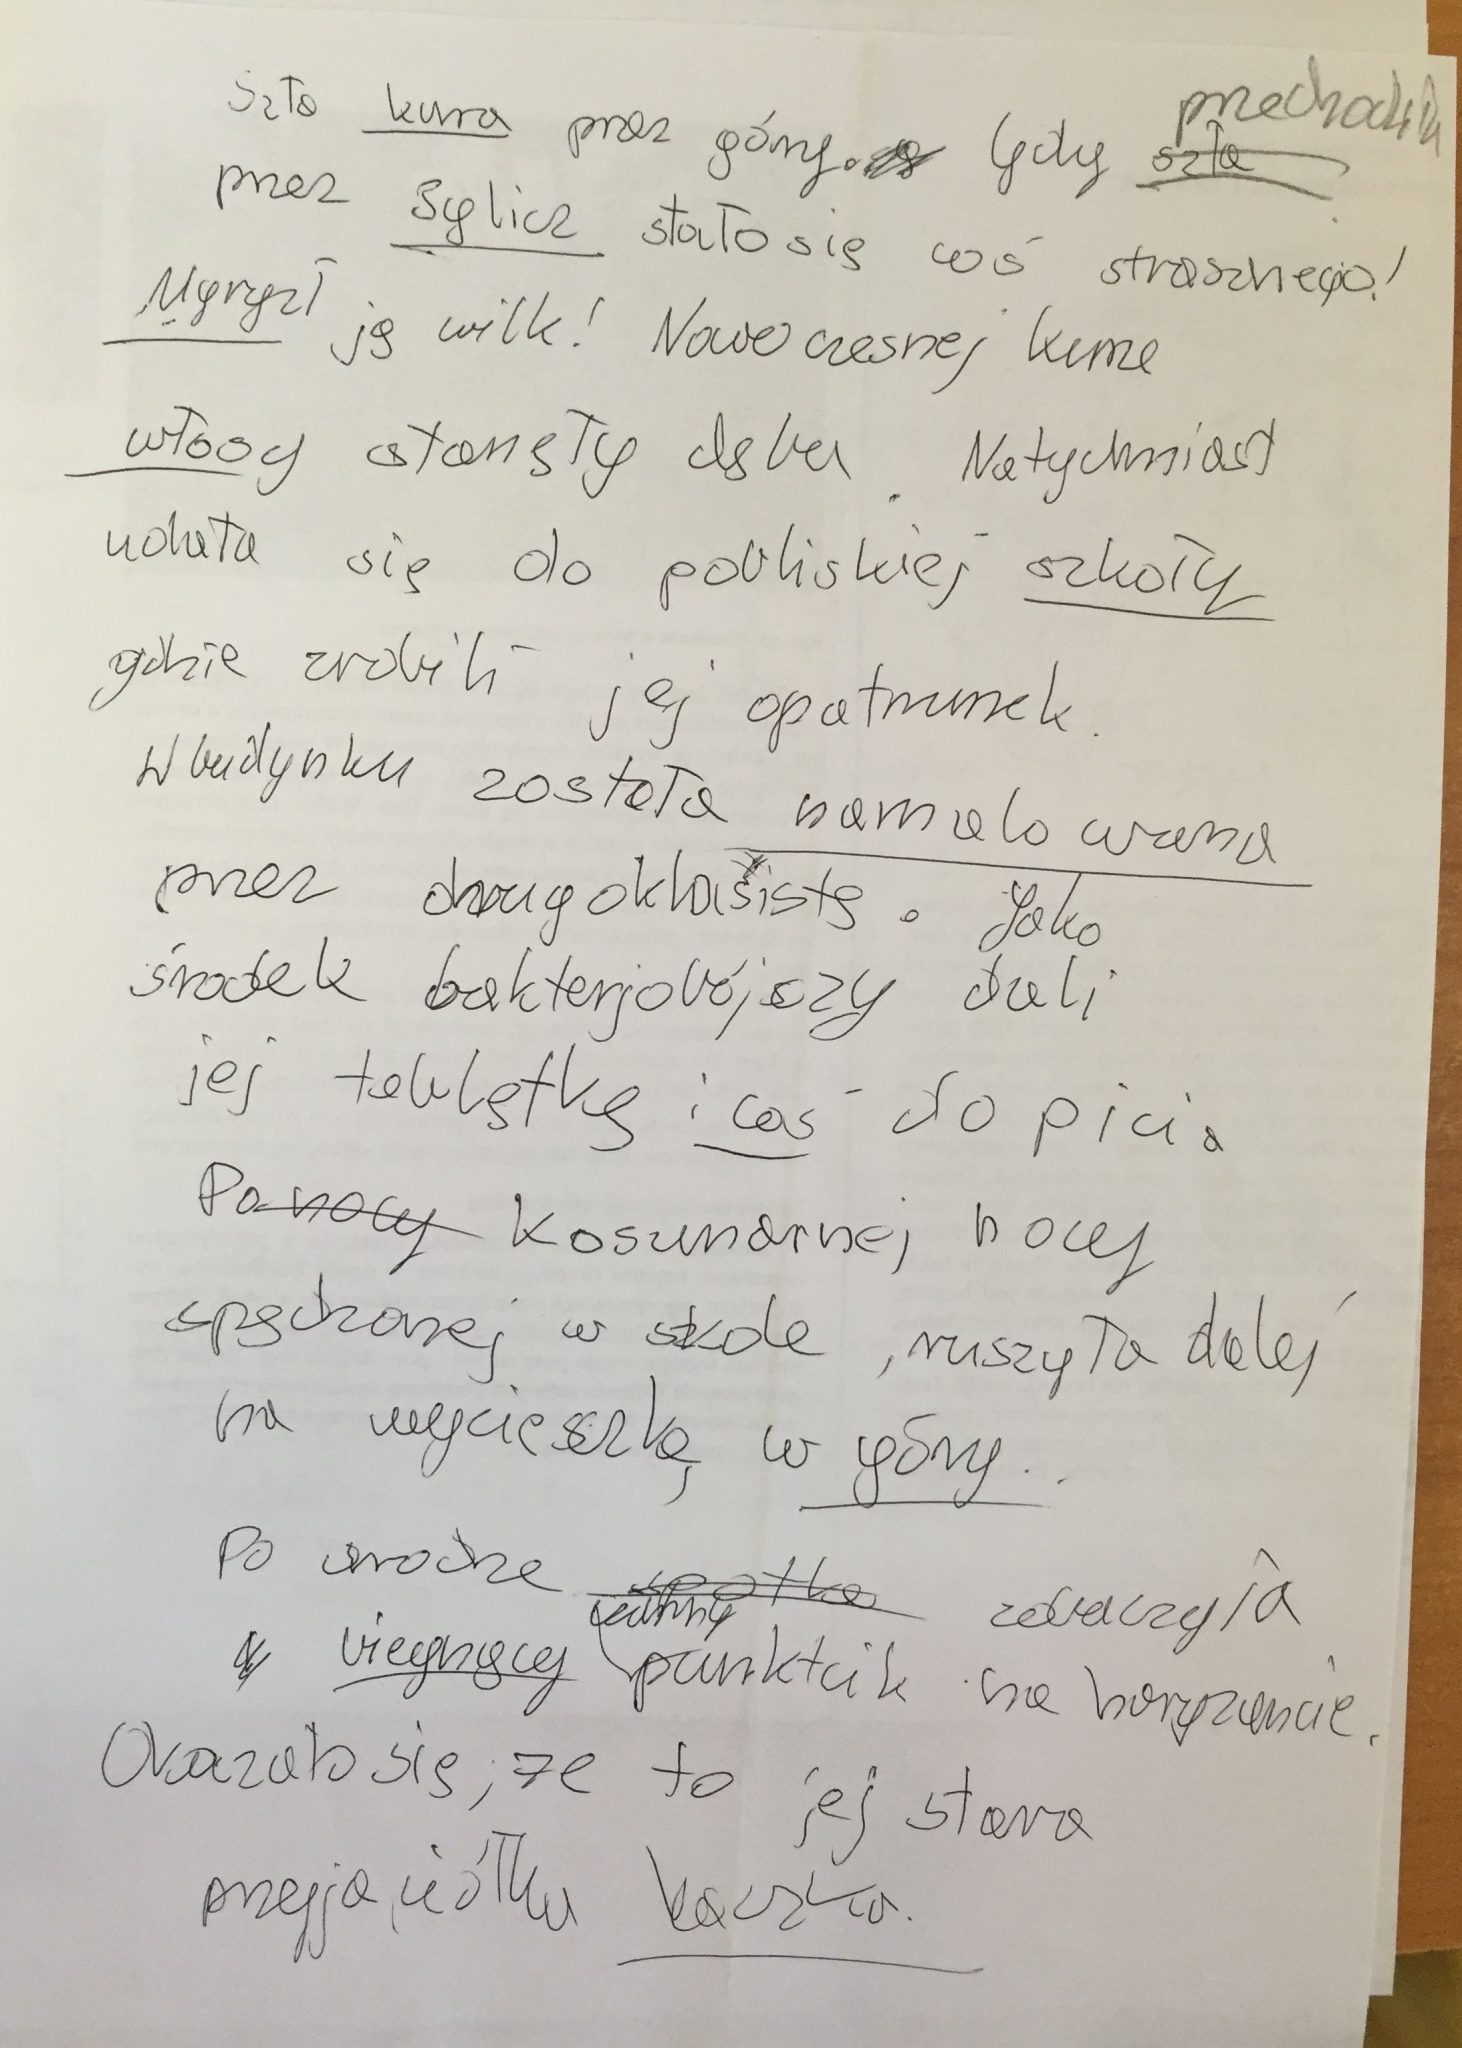 Szła kura przez góry. Gdy szła przechodziła
przez Bylicz stało się coś strasznego!
Ugryzł ją wilk! Nowoczesnej kurze
włosy stanęły dęba. Natychmiast
udała się do pobliskiej szkoły
gdzie zrobili jej opatrunek.
W budynku została namalowana
przez drugoklasistę. Jako
środek bakterjobójszy dali
jej tabletkę i coś do picia
Po nocy koszmarnej nocy
spędzonej w szkole, ruszyła dalej
na wycieszkę w góry..
Po drodze spotka zobaczyła
biegnący punkcik na horyzoncie.
Okazało się, że to jej stara
przyjaciółka kaczka.